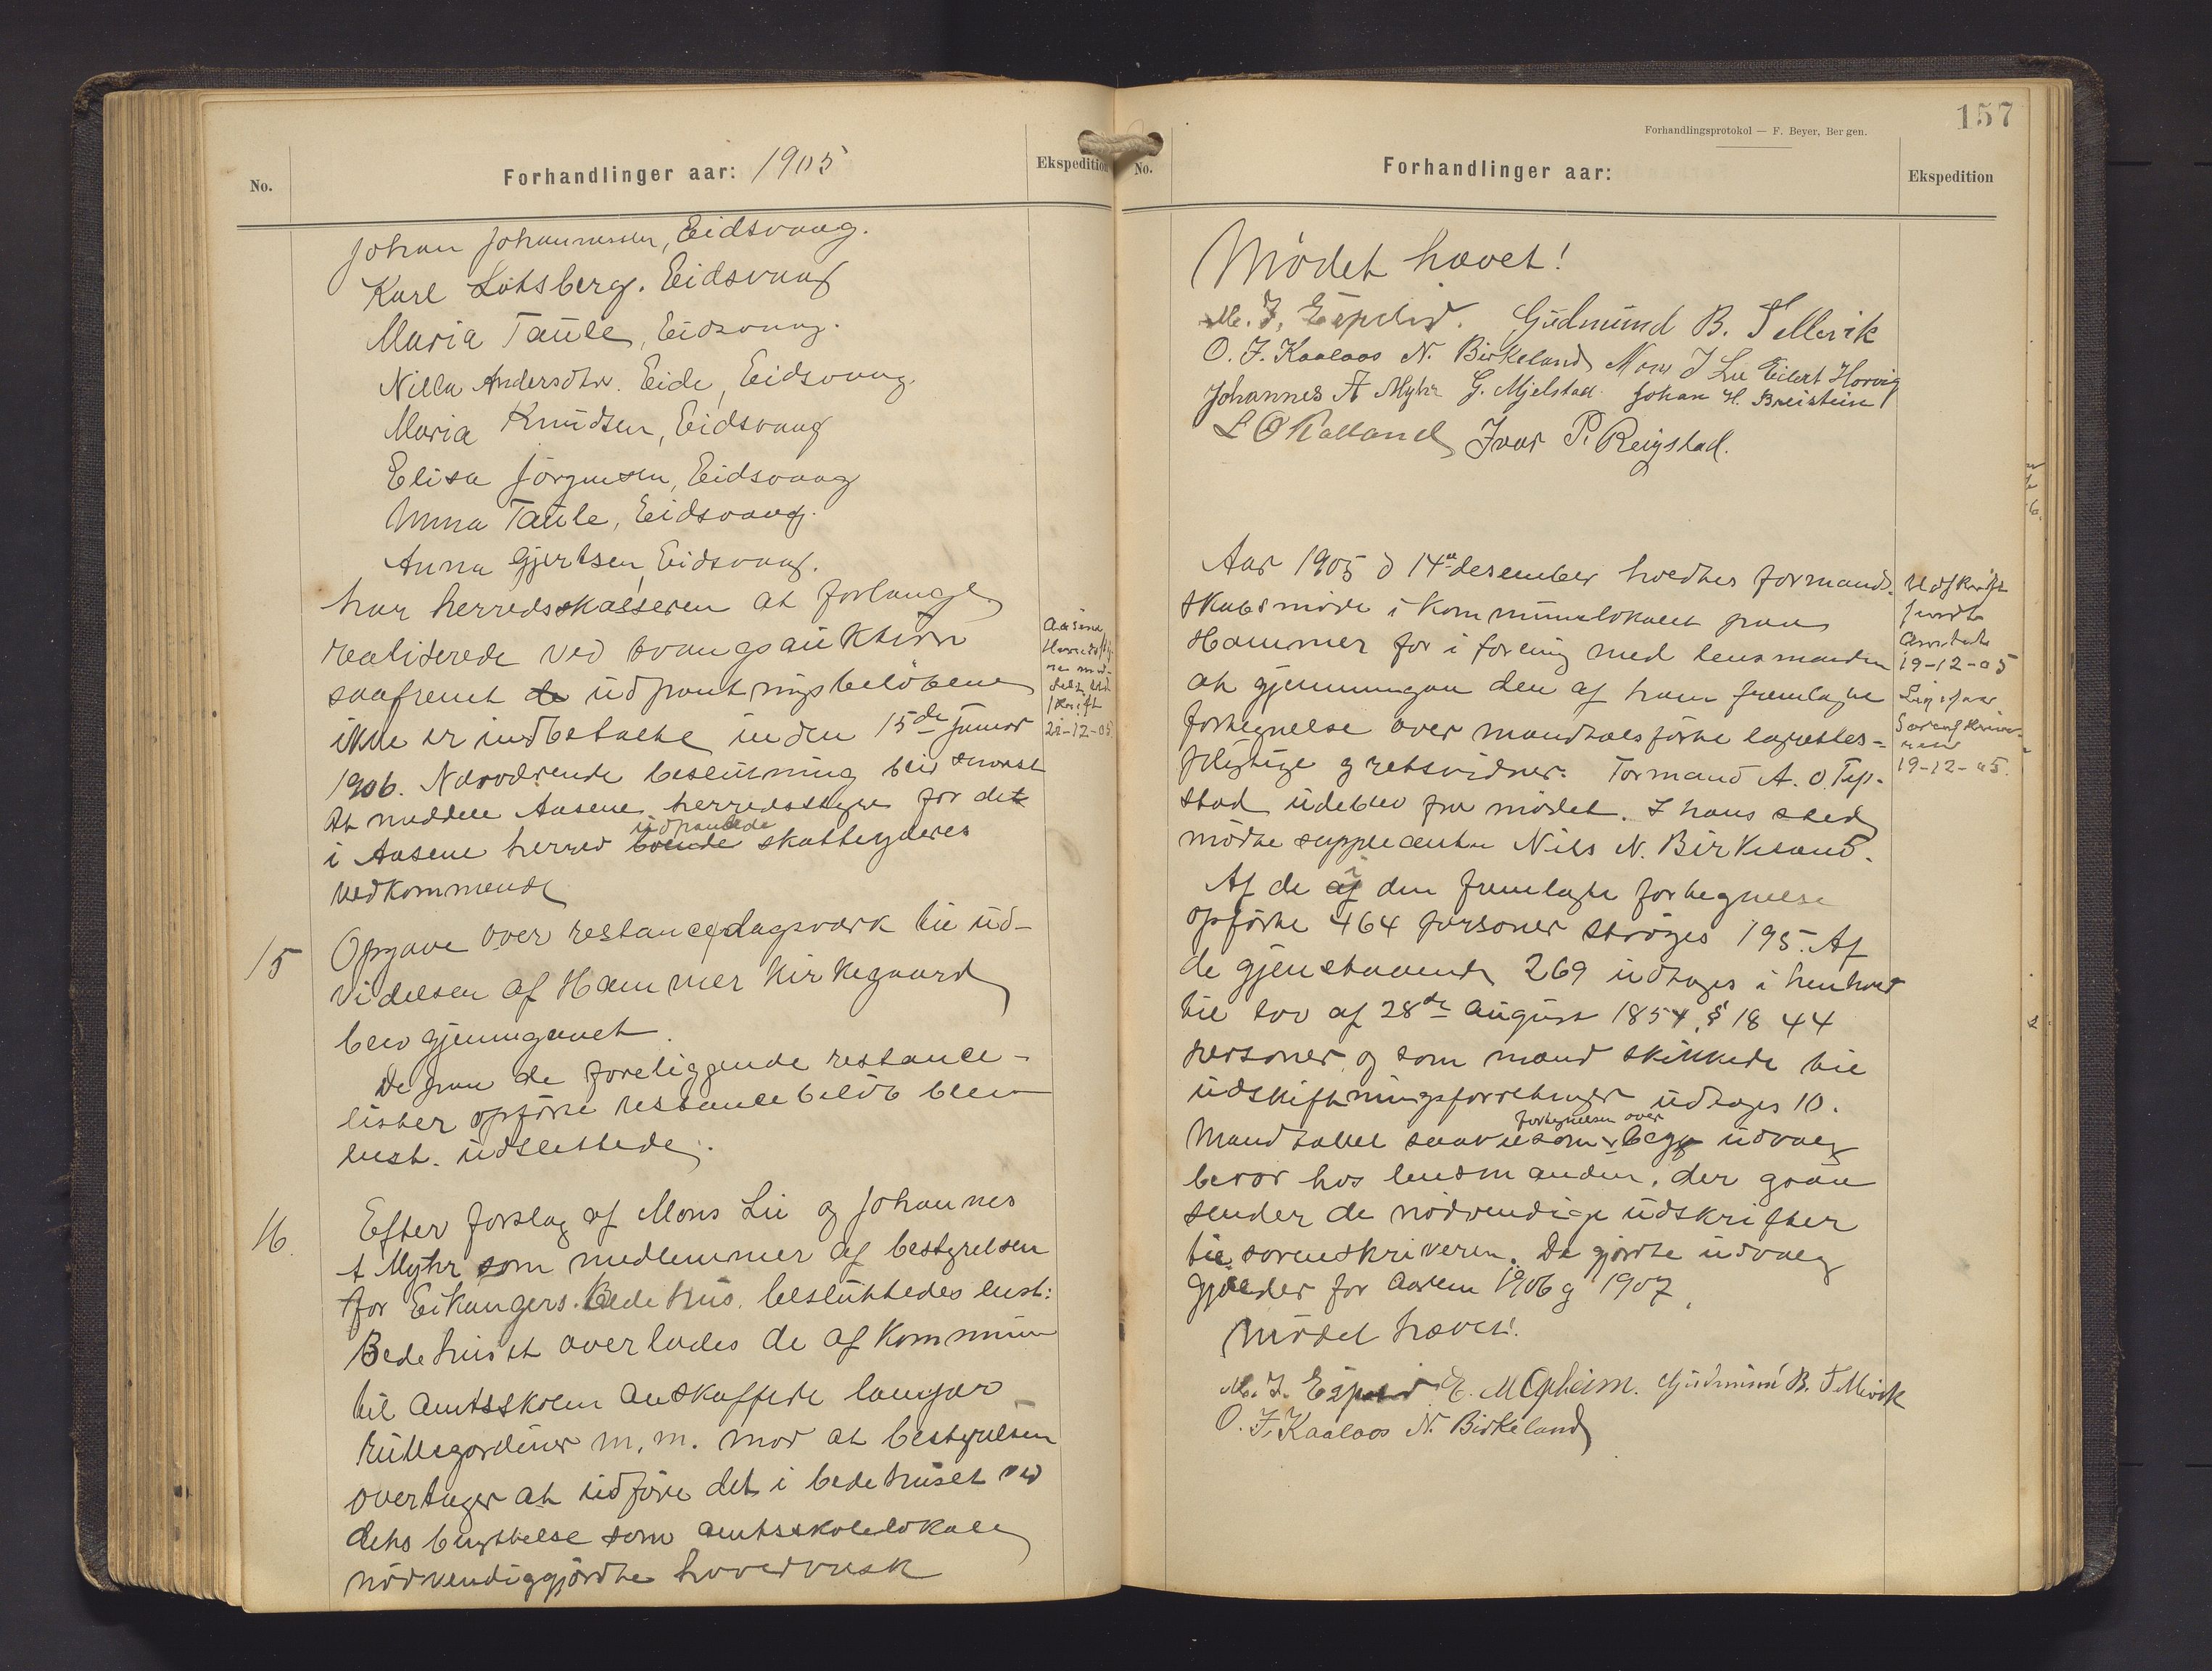 No.
Forhandlinger aar: 1905
Ekspedition
Johan Johannessen, Eidsvaag.
Karl Lotsberg. Eidsvaag
Maria Taule, Eidsvaag.
Nilla Andersdtr. Eide, Eidsvaag.
Maria Knudsen, Eidsvaag
Elisa Jørgensen, Eidsvaag
Anna Taule, Eidsvaag.
Anna Gjertsen, Eidsvaag.
har herredskasseren at forlange
realiserede ved tvangsauktion
saafremt de udpantningsbeløbene
ikke er indbetalte inden 15de januar
1906. Nærværende beslutning blir snarest
At meddele Aasene herredsstyre for det
i Aasene herred boende udpantede skatteyderes
vedkommende
Aasene
Herredssty-
re med-
delt, ud-
skrift
21-12-05
15 Opgave over restancedagsværk til ud-
videlsen af Hammer Kirkegaard
blev gjennemgaaet.
De paa de foreliggende restance-
lister opførte restancebeløb blev
enst. udslettede.
16. Efter forslag af Mons Lii og Johannes
A Myhr som medlemmer af bestyrelsen
for Eikangers Bedehus besluttedes enst:
Bedehuset overlades de af Kommunen
til amtsskolen anskaffede lamper
rullegardiner m. m. mod at bestyrelsen
overtager at udføre det i bedehuset ved
dets benyttelse som amtsskolelokale
nødvendiggjordte hovedvask
157
Forhandlingsprotokol — F. Beyer, Bergen.
No.
Forhandlinger aar:
Ekspedition
Mødet hævet!
M. J. Espelid. Gudmund B. Tellevik
O. J. Kaalaas N. Birkeland Mons J Lii Eilert Horvig
Johannes A Myhr G. Mjelstad Johan H. Breistein
L O Kalland Ivar P. Reigstad.
Aar 1905 d 14de desember holdtes formand-
skabsmøde i Kommunelokalet paa
Hammer for i forening med lensmanden
at gjennemgaa den af ham fremlagte
fortegnelse over mandtalsførte lagrettes-
pligtige og retsvidner. Formand A. O. Tep-
stad udeblev fra mødet. I hans sted
mødte suppleanten Nils N. Birkeland.
Udskrift
sendt
Amtet
19-12-05
Ligesaa
Sorenskrive-
ren
19-12-05.
Af de af i den fremlagte fortegnelse
opførte 464 personer strøges 195. Af
de gjenstaaende 269 udtoges i henhold
til lov af 28de august 1854, § 18 44
personer og som mænd skikkede til
udskiftningsforretninger udtoges 10.
Mandtallet saavelsom fortegnelsen over begge udvalg
beror hos lensmanden, der
sender de nødvendige udskrifter
til sorenskriveren. De gjordte udvalg
gjælder for aarene 1906 og 1907.
Mødet hævet!
M. J. Espelid E. M Opheim. Gudmund B. Tellevik
O. J. Kaalaas N. Birkeland